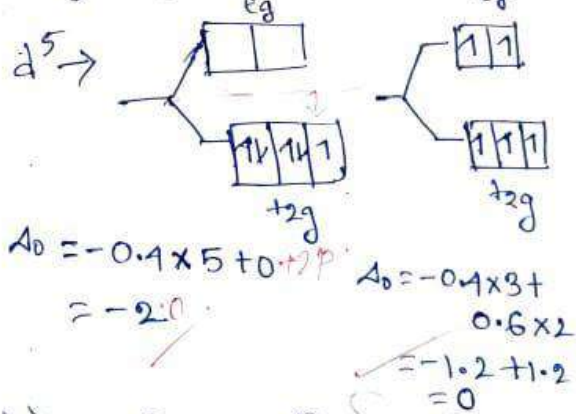 eg
d⁵→
1↓ 1↓ 1
t2g
1 1
1 1 1
t2g
Δ0 = -0.4 × 5 + 0 + 2P
= -2.0
Δ0 = -0.4×3+
0.6×2
= -1.2 + 1.2
= 0